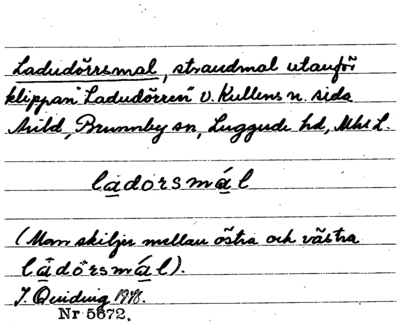 Ladudörrsmal, strandmal utanför
klippan "Ladudörren" v. Kullens n. sida
Arild, Brunnby sn, Luggude hd, Mhs L.
ladorsmál
(Man skiljer mellan östra och västra
lådörsmál).
J. Qvidvig 1918.
Nr 5672.